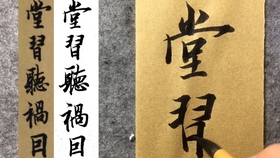 堂習
堂習聽禍因
堂習聽禍因